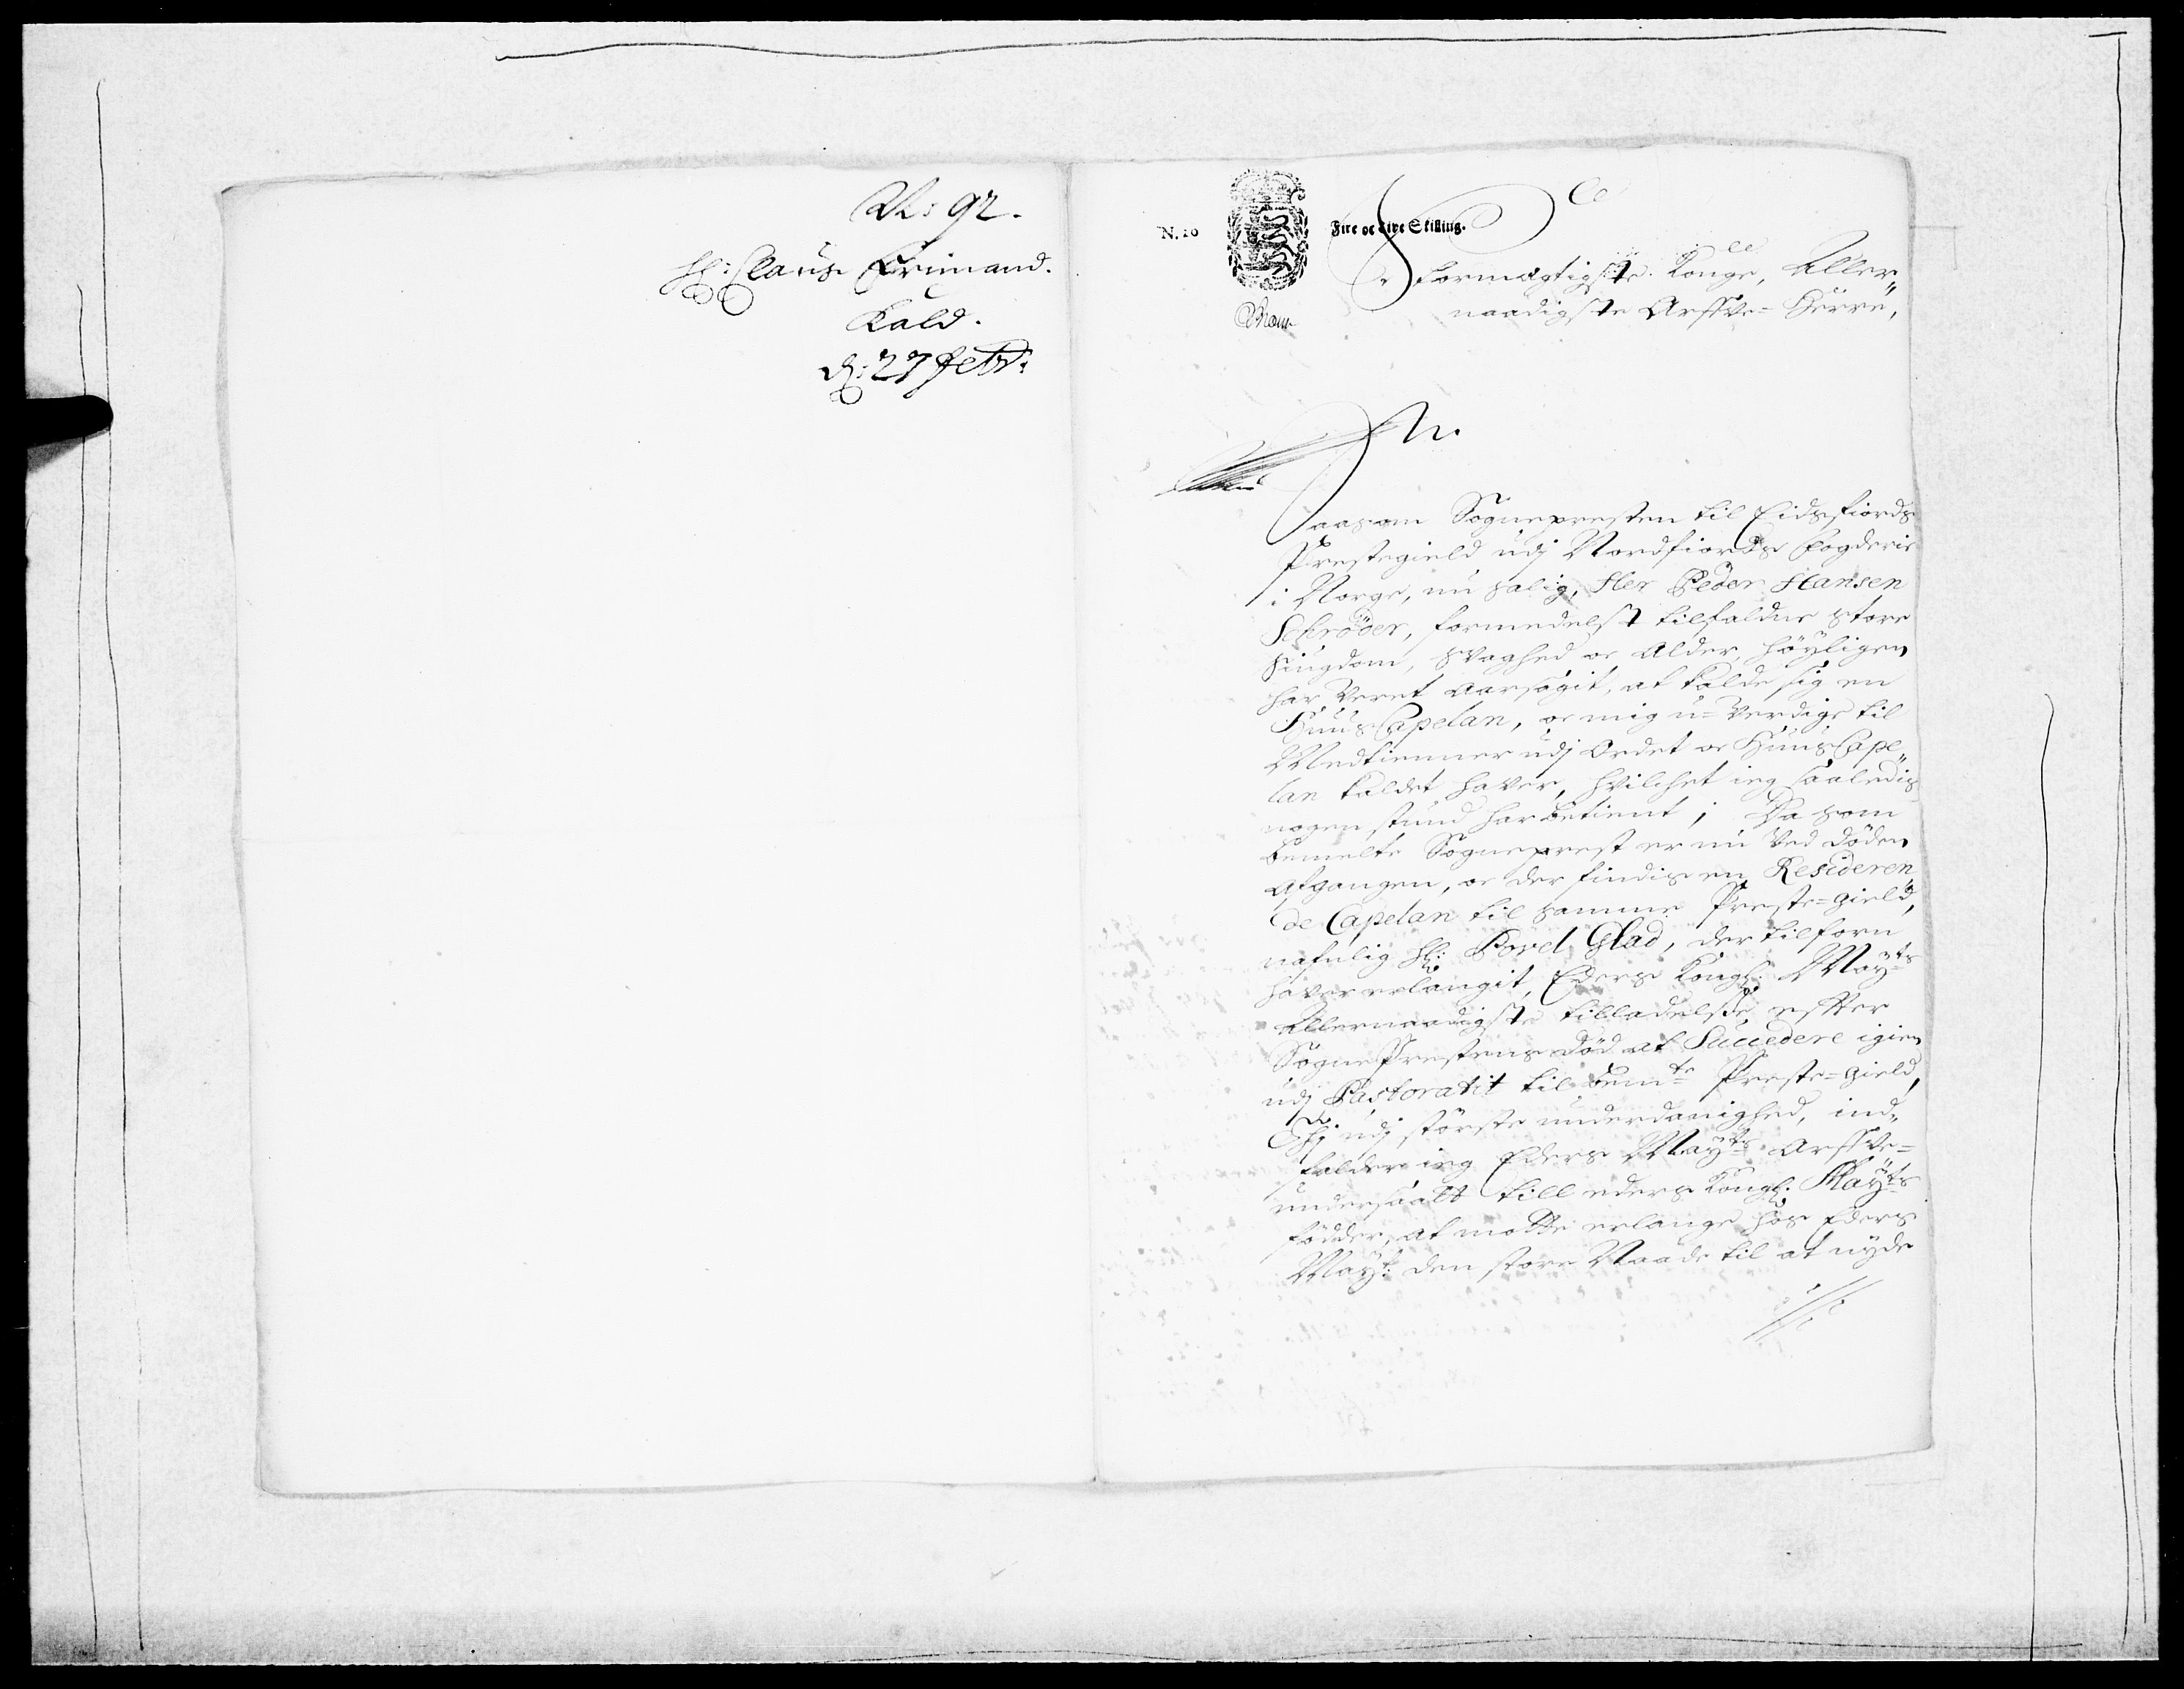 No: 92.
Hr: Claus Frimand.
Kald.
d: 27 Febr:
N. 10
Fire oc tive Skilling.
Stormægtigste Konge, Aller„
naadigste Arffve-Herre,
Saasom Sognepresten til Eidsfiords
Prestegield udj Nordfiords fogderie
i Norge, nu salig, Her Peder Hansen
Schrøder, formedelst tilfaldne store
siugdom, svaghed oc alder, høyligen
har veret aarsagit, at kalde sig en
Huus Capelan, oc mig u-verdige til
Medtienner udj Ordet oc Huus Cape„
lan kaldet haver, hvilchet ieg saaledis
nogen stund har betient; Da som
bemelte Sogneprest er nu ved døden
afgangen, oc der findis en Resideren„
de Capelan til samme Preste-gield,
nafnlig Hr: Povel Glad, der tilforn
haver erlangit, Eders Kongl: Mayts
allernaadigste tilladelse, effter
Sogneprestens død at Succedere igien
udj Pastoratit til bemte Preste-gield,
Thj udj største underdanighed, ind„
falder ieg Eders Mayts Arffve-
undersaatt till eders Kongl: Mayts
fødder, at motte erlange hos Eders
Mayt: den store Naade til at nyde